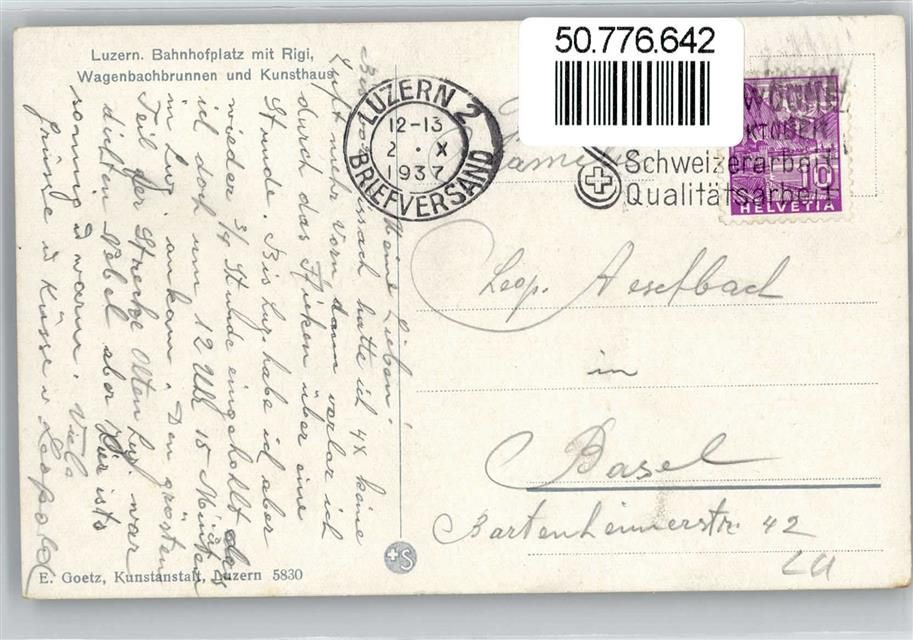 Luzern. Bahnhofplatz mit Rigi,
Wagenbachbrunnen und Kunsthaus
50.776.642
LUZERN 2
12-13
2. X
1937
BRIEFVERSAND
Schweizerarbeit
Qualitätsarbeit
10
HELVETIA
Familie
Leop. Aeschbach
in
Basel
Bartenheimerstr. 42
LU
Meine Lieben!
hatte ich 4x keine
Luft mehr vorn dann verlor ich
durch das Flicken über eine
Stunde. Bis Luz. habe ich aber
wieder 3/4 Stunde eingeholt das
ich doch um 12 Uhr 15 Minuten
in Luz. ankam. Den grössten
Teil der Strecke Olten Luz. war
dichten Nebel aber hier ists
sonnig & warm. Viele
Grüsse & Küsse v. Leopold
+S
E. Goetz, Kunstanstalt, Luzern 5830